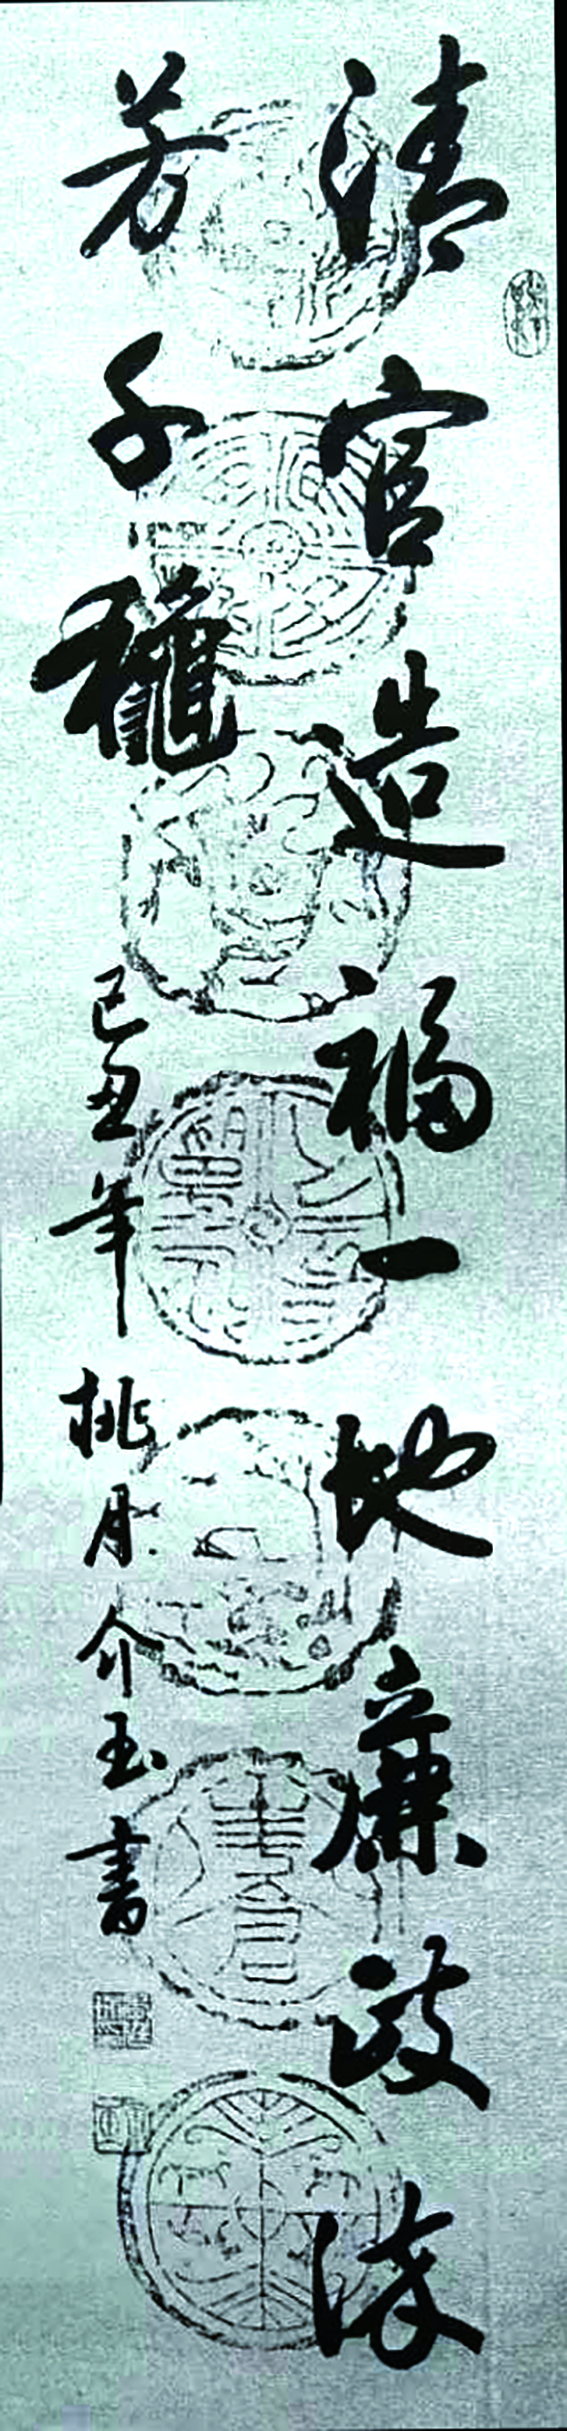 清官造福一地廉政流
芳千龝
己丑年桃月介玉書